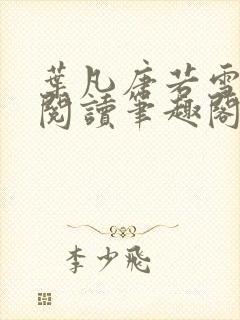 葉凡唐若雪
閱讀筆趣閣
李少飛